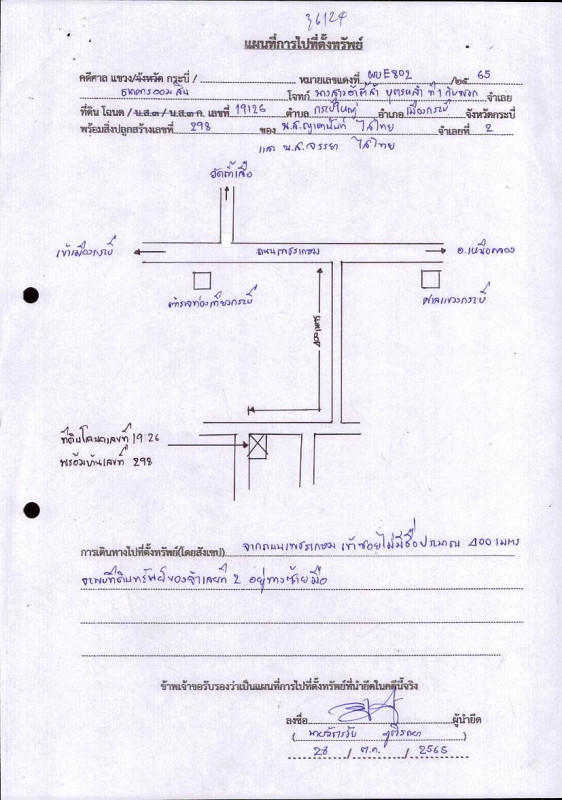 36124
แผนที่การไปที่ตั้งทรัพย์
คดีศาล แขวง/จังหวัด กระบี่ / หมายเลขแดงที่ ผบE802 /๒๕ 65
ธนาคารออมสิน โจทก์ จำเลย
ที่ดิน โฉนด / น.ส.๓ / น.ส.๓ ก. เลขที่ 19126 ตำบล กระบี่ใหญ่ อำเภอ เมืองกระบี่ จังหวัดกระบี่
พร้อมสิ่งปลูกสร้างเลขที่ 298 ของ น.ส. ไสไทย จำเลยที่ 2
และ น.ส. จรรยา ไสไทย
วัดถ้ำเสือ
เข้าเมืองกระบี่ ถนนเพชรเกษม อ.เหนือคลอง
ตำรวจท่องเที่ยวกระบี่ ศาลแขวงกระบี่
400 เมตร
ที่ดินโฉนดเลขที่ 19126
พร้อมบ้านเลขที่ 298
การเดินทางไปที่ตั้งทรัพย์(โดยสังเขป) จากถนนเพชรเกษม เข้าซอยไม่มีชื่อประมาณ 400 เมตร
จะพบที่ดินทรัพย์ของจำเลยที่ 2 อยู่ทางซ้ายมือ
ข้าพเจ้าขอรับรองว่าเป็นแผนที่การไปที่ตั้งทรัพย์ที่นำยึดในคดีนี้จริง
ลงชื่อ ผู้นำยึด
( )
28 / ต.ค. / 2565